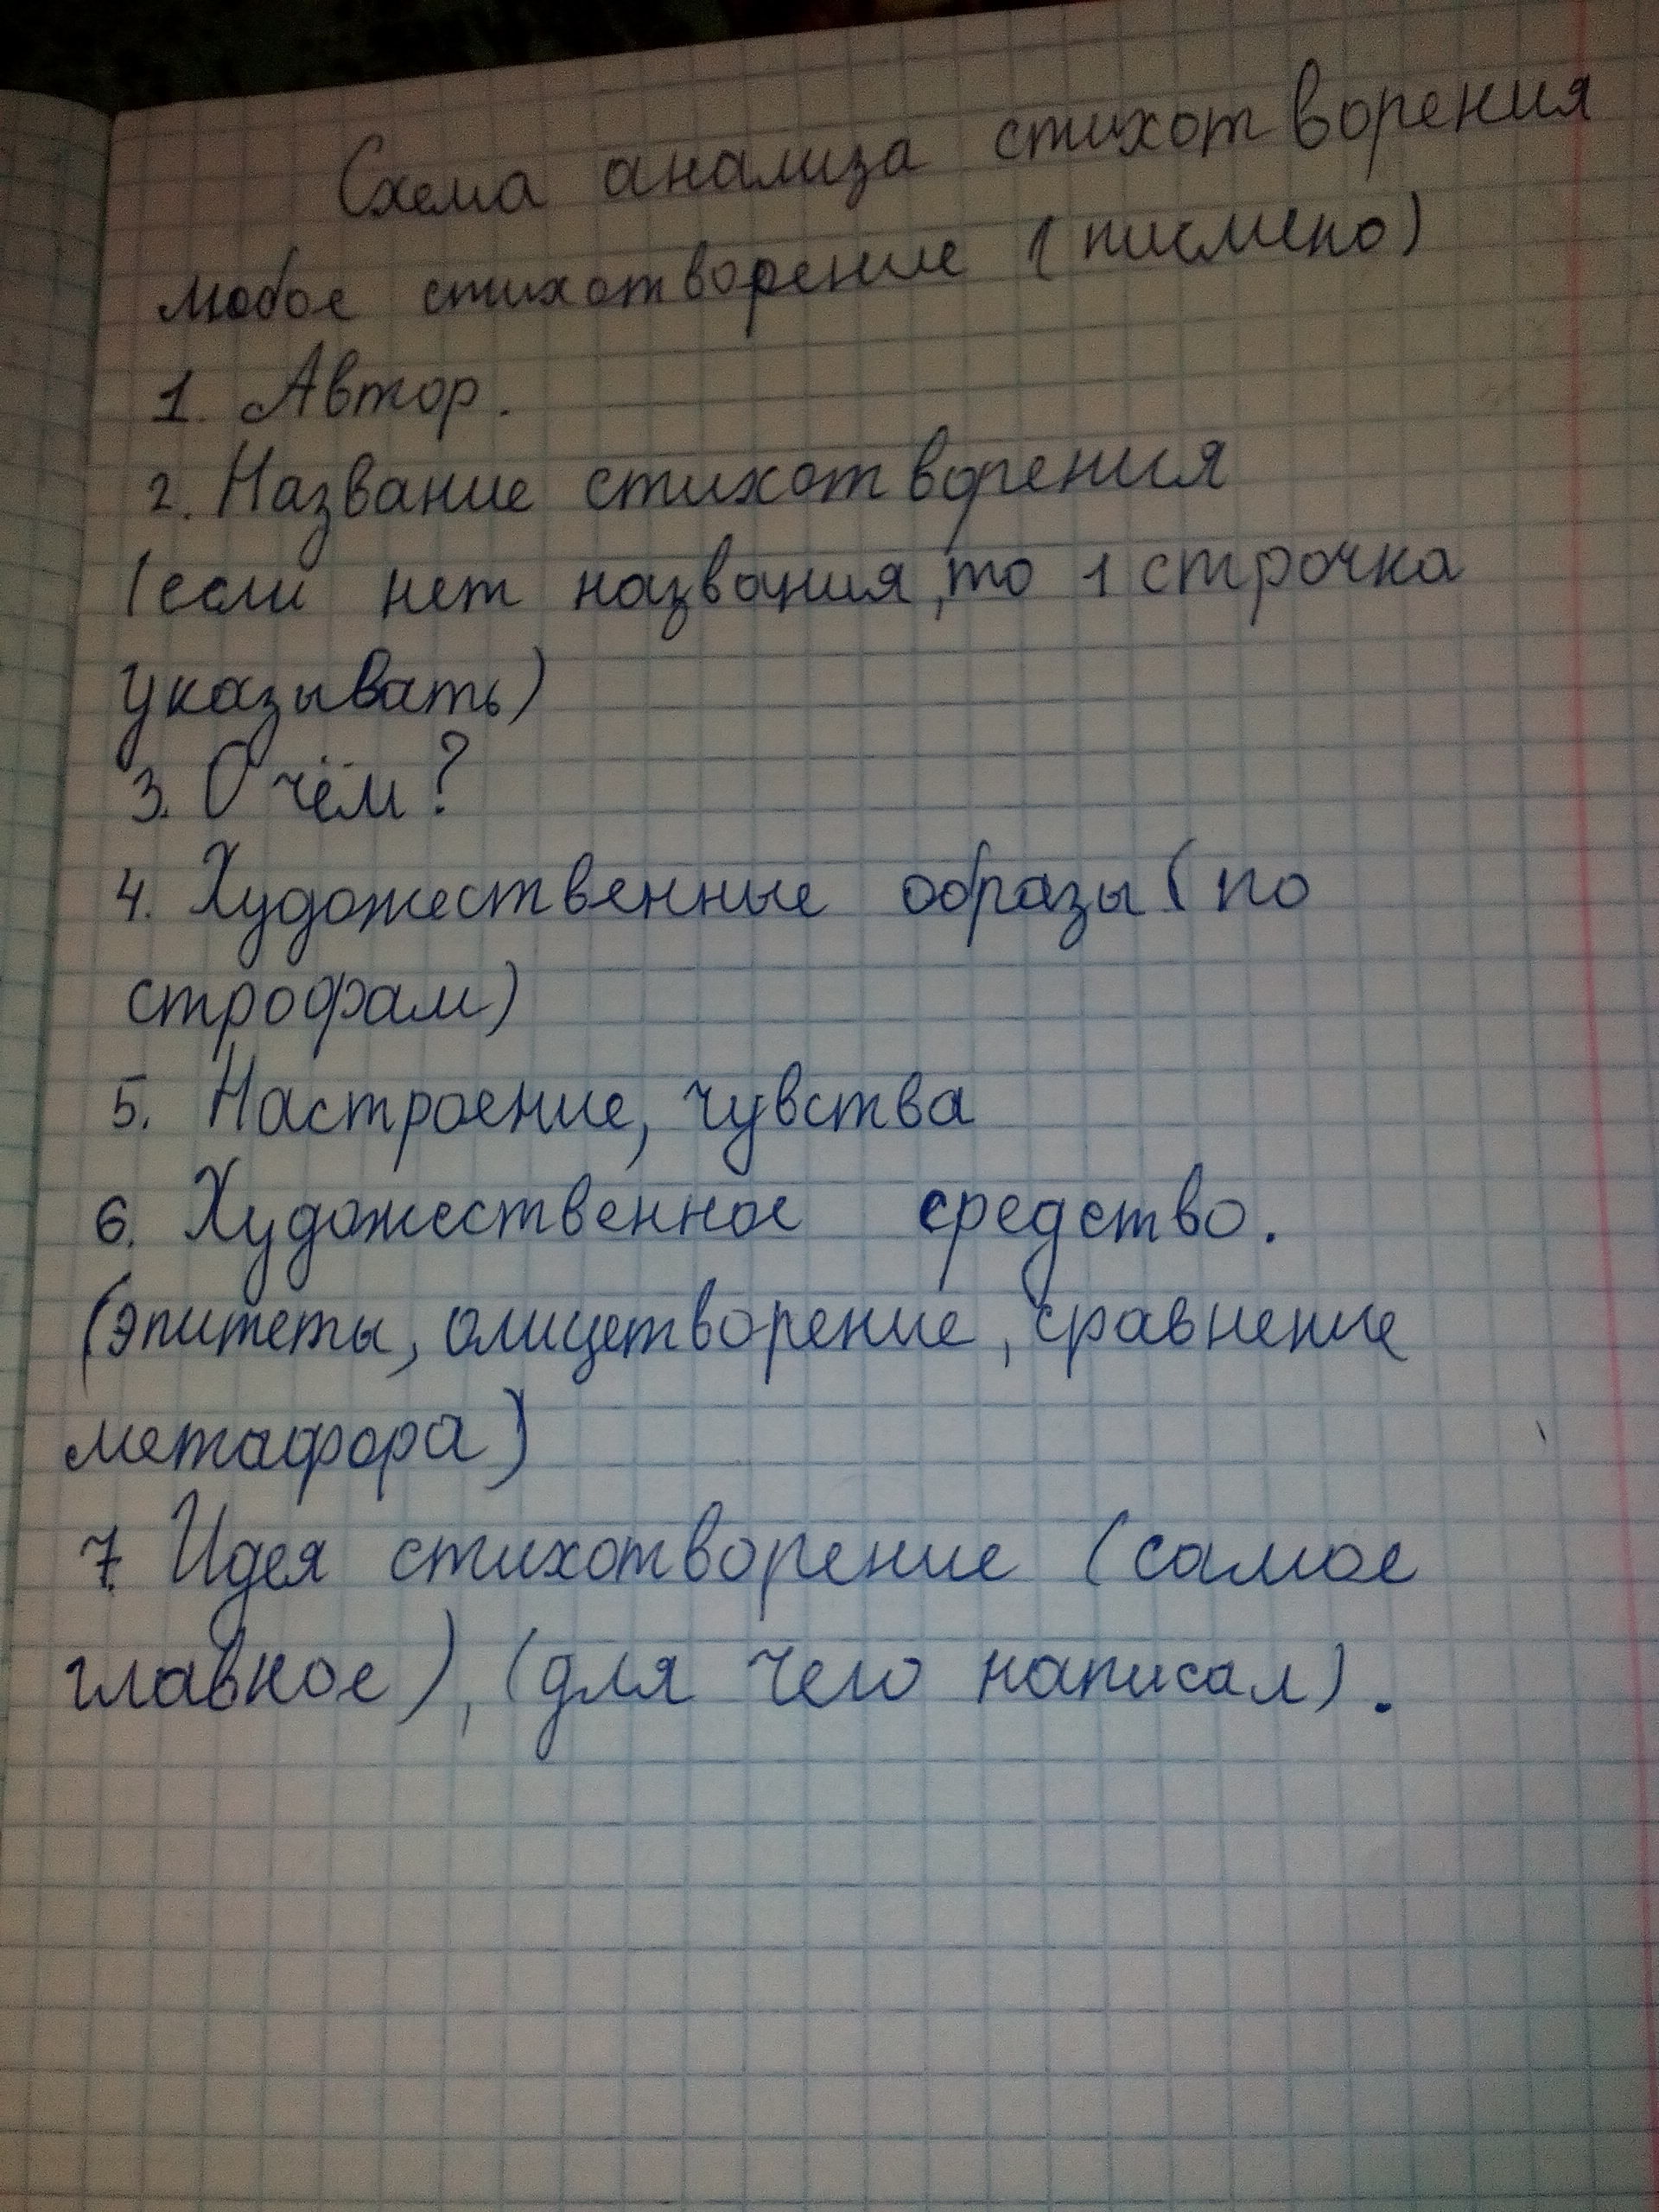 Схема анализа стихотворения
любое стихотворение (писмено)
1. Автор.
2. Название стихотворения
(если нет названия, то 1 строчка
указывать)
3. О чём?
4. Художественные образы (по
строфам)
5. Настроение, чувства
6. Художественное средство.
(эпитеты, олицетворение, сравнение
метафора)
7. Идея стихотворение (самое
главное), (для чего написал).